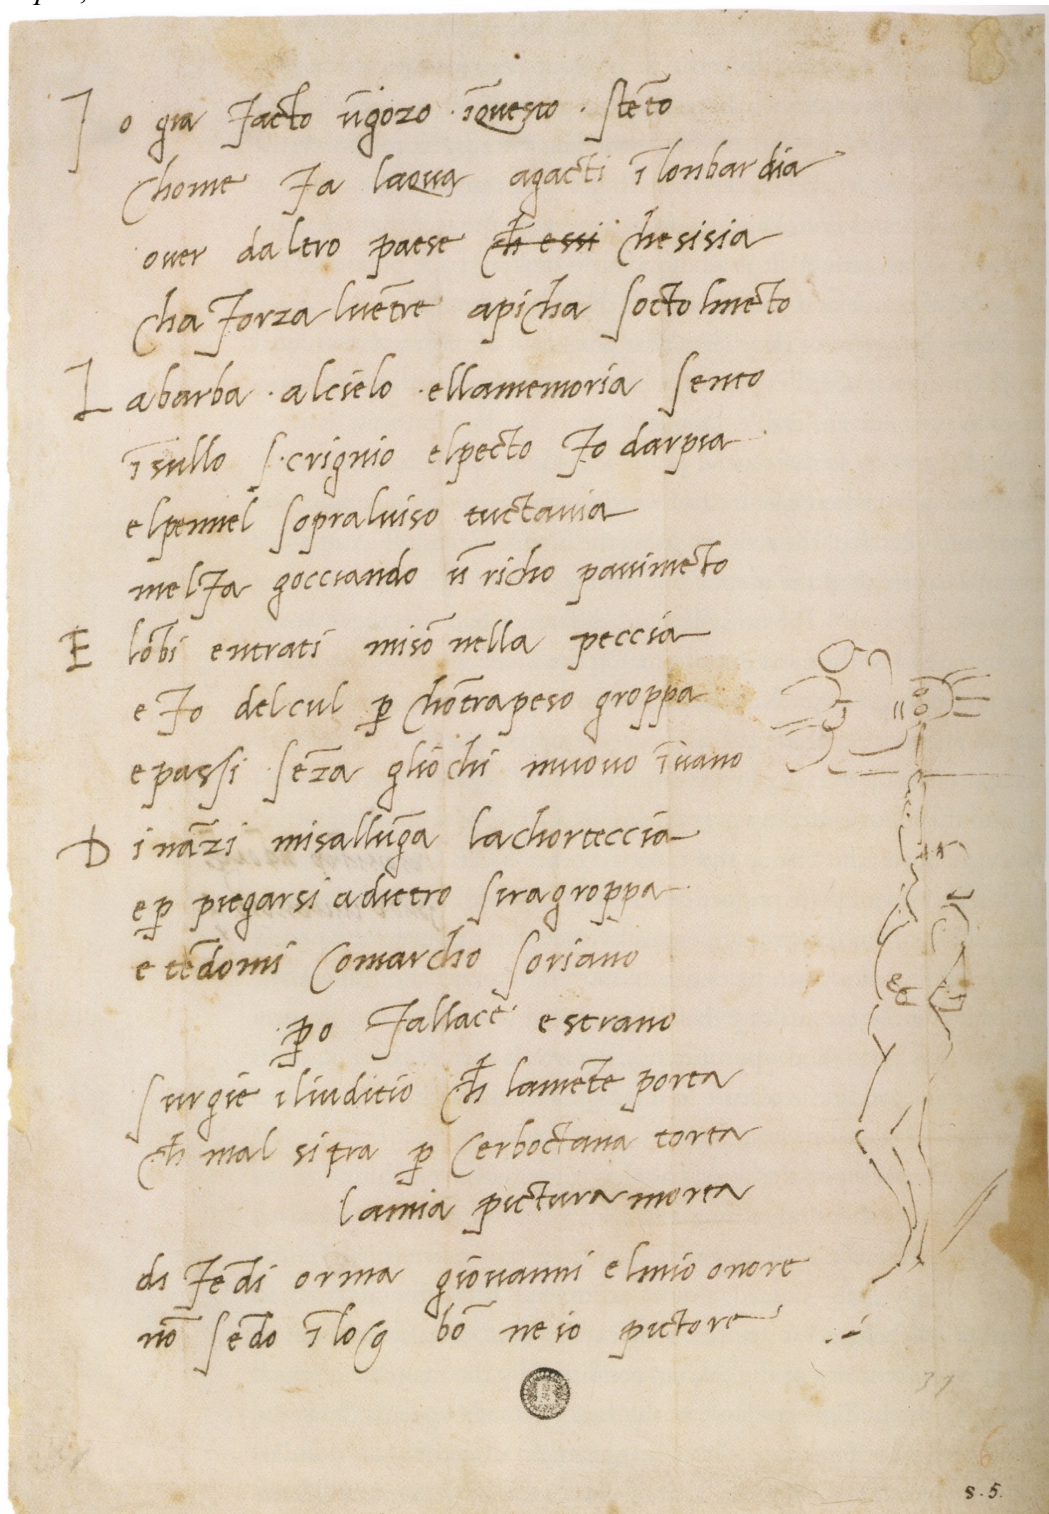 Io gia facto ūgozo · īquesto · stēto
chome fa laqua agacti ī lonbardia
over daltro paese ch̄ essi chesisia
cha forza lvētre apicha soctolmēto
La barba · alcielo · ellamemoria sento
īsullo scrignio elpecto fo darpia
elpennel sopralviso tuctavia
melfa gocciando ū richo pavimēto
E lōbi entrati misō nella peccia
e fo delcul ꝑ chōtrapeso groppa
e passi sēza gliochi muovo īvano
Dināzi misallūga lachorteccia
e ꝑ piegarsi adietro siragroppa
e tēdomi comarcho soriano
ꝑo fallace e strano
surgie iliuditio ch̄ lamēte porta
ch̄ mal si tra ꝑ cerboctana torta
lamia pictura morta
difēdi orma giovanni elmio onore
nō sēdo ī log bō ne io pictore
37
6
8.5.